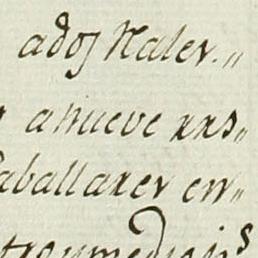 ados Rales.,,
a nueve rrs,,
aballares en,,
tro y medio